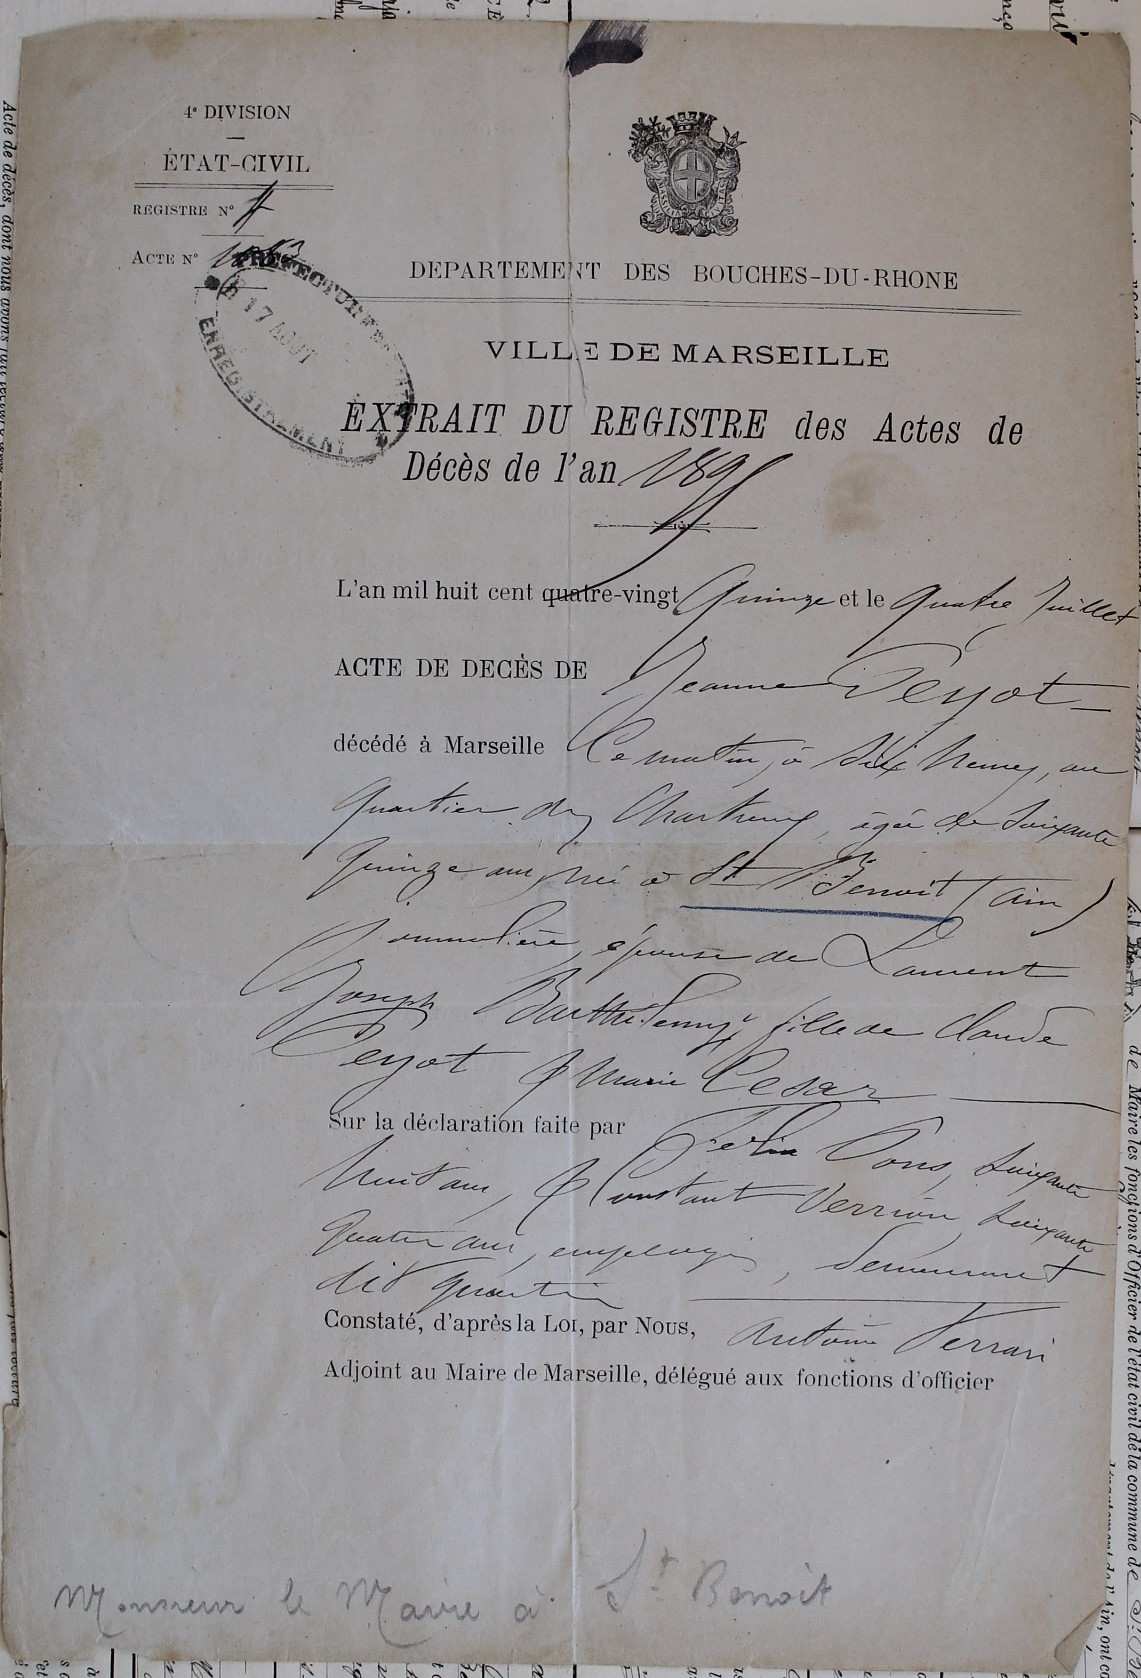 4e DIVISION
ÉTAT-CIVIL
REGISTRE N°
ACTE N°
PREFECTURE
17 AOUT
ENREGISTREMENT
DEPARTEMENT DES BOUCHES-DU-RHONE
VILLE DE MARSEILLE
EXTRAIT DU REGISTRE des Actes de
Décès de l'an 1895
L'an mil huit cent quatre-vingt Quinze et le Quatre Juillet
ACTE DE DECÈS DE Jeanne Peyot
décédé à Marseille Ce matin, à Six heures, au
quartier des Chartreux, âgée de Soixante
quinze ans, née à St Benoit (Ain)
Journalière, épouse de Laurent
Joseph Barthélemy, fille de Claude
Peyot & Marie Cesar
Sur la déclaration faite par Félix Pons, Soixante
huit ans, & Constant Verrion, Soixante
Quatre ans, employés, demeurant
dit quartier
Constaté, d'après la Loi, par Nous, Antoine Ferrari
Adjoint au Maire de Marseille, délégué aux fonctions d'officier
Monsieur le Maire à St Benoit
Acte de décès, dont nous avons
de Maire les fonctions d'Officier de l'état civil de la commune de
département de l'Ain, ont